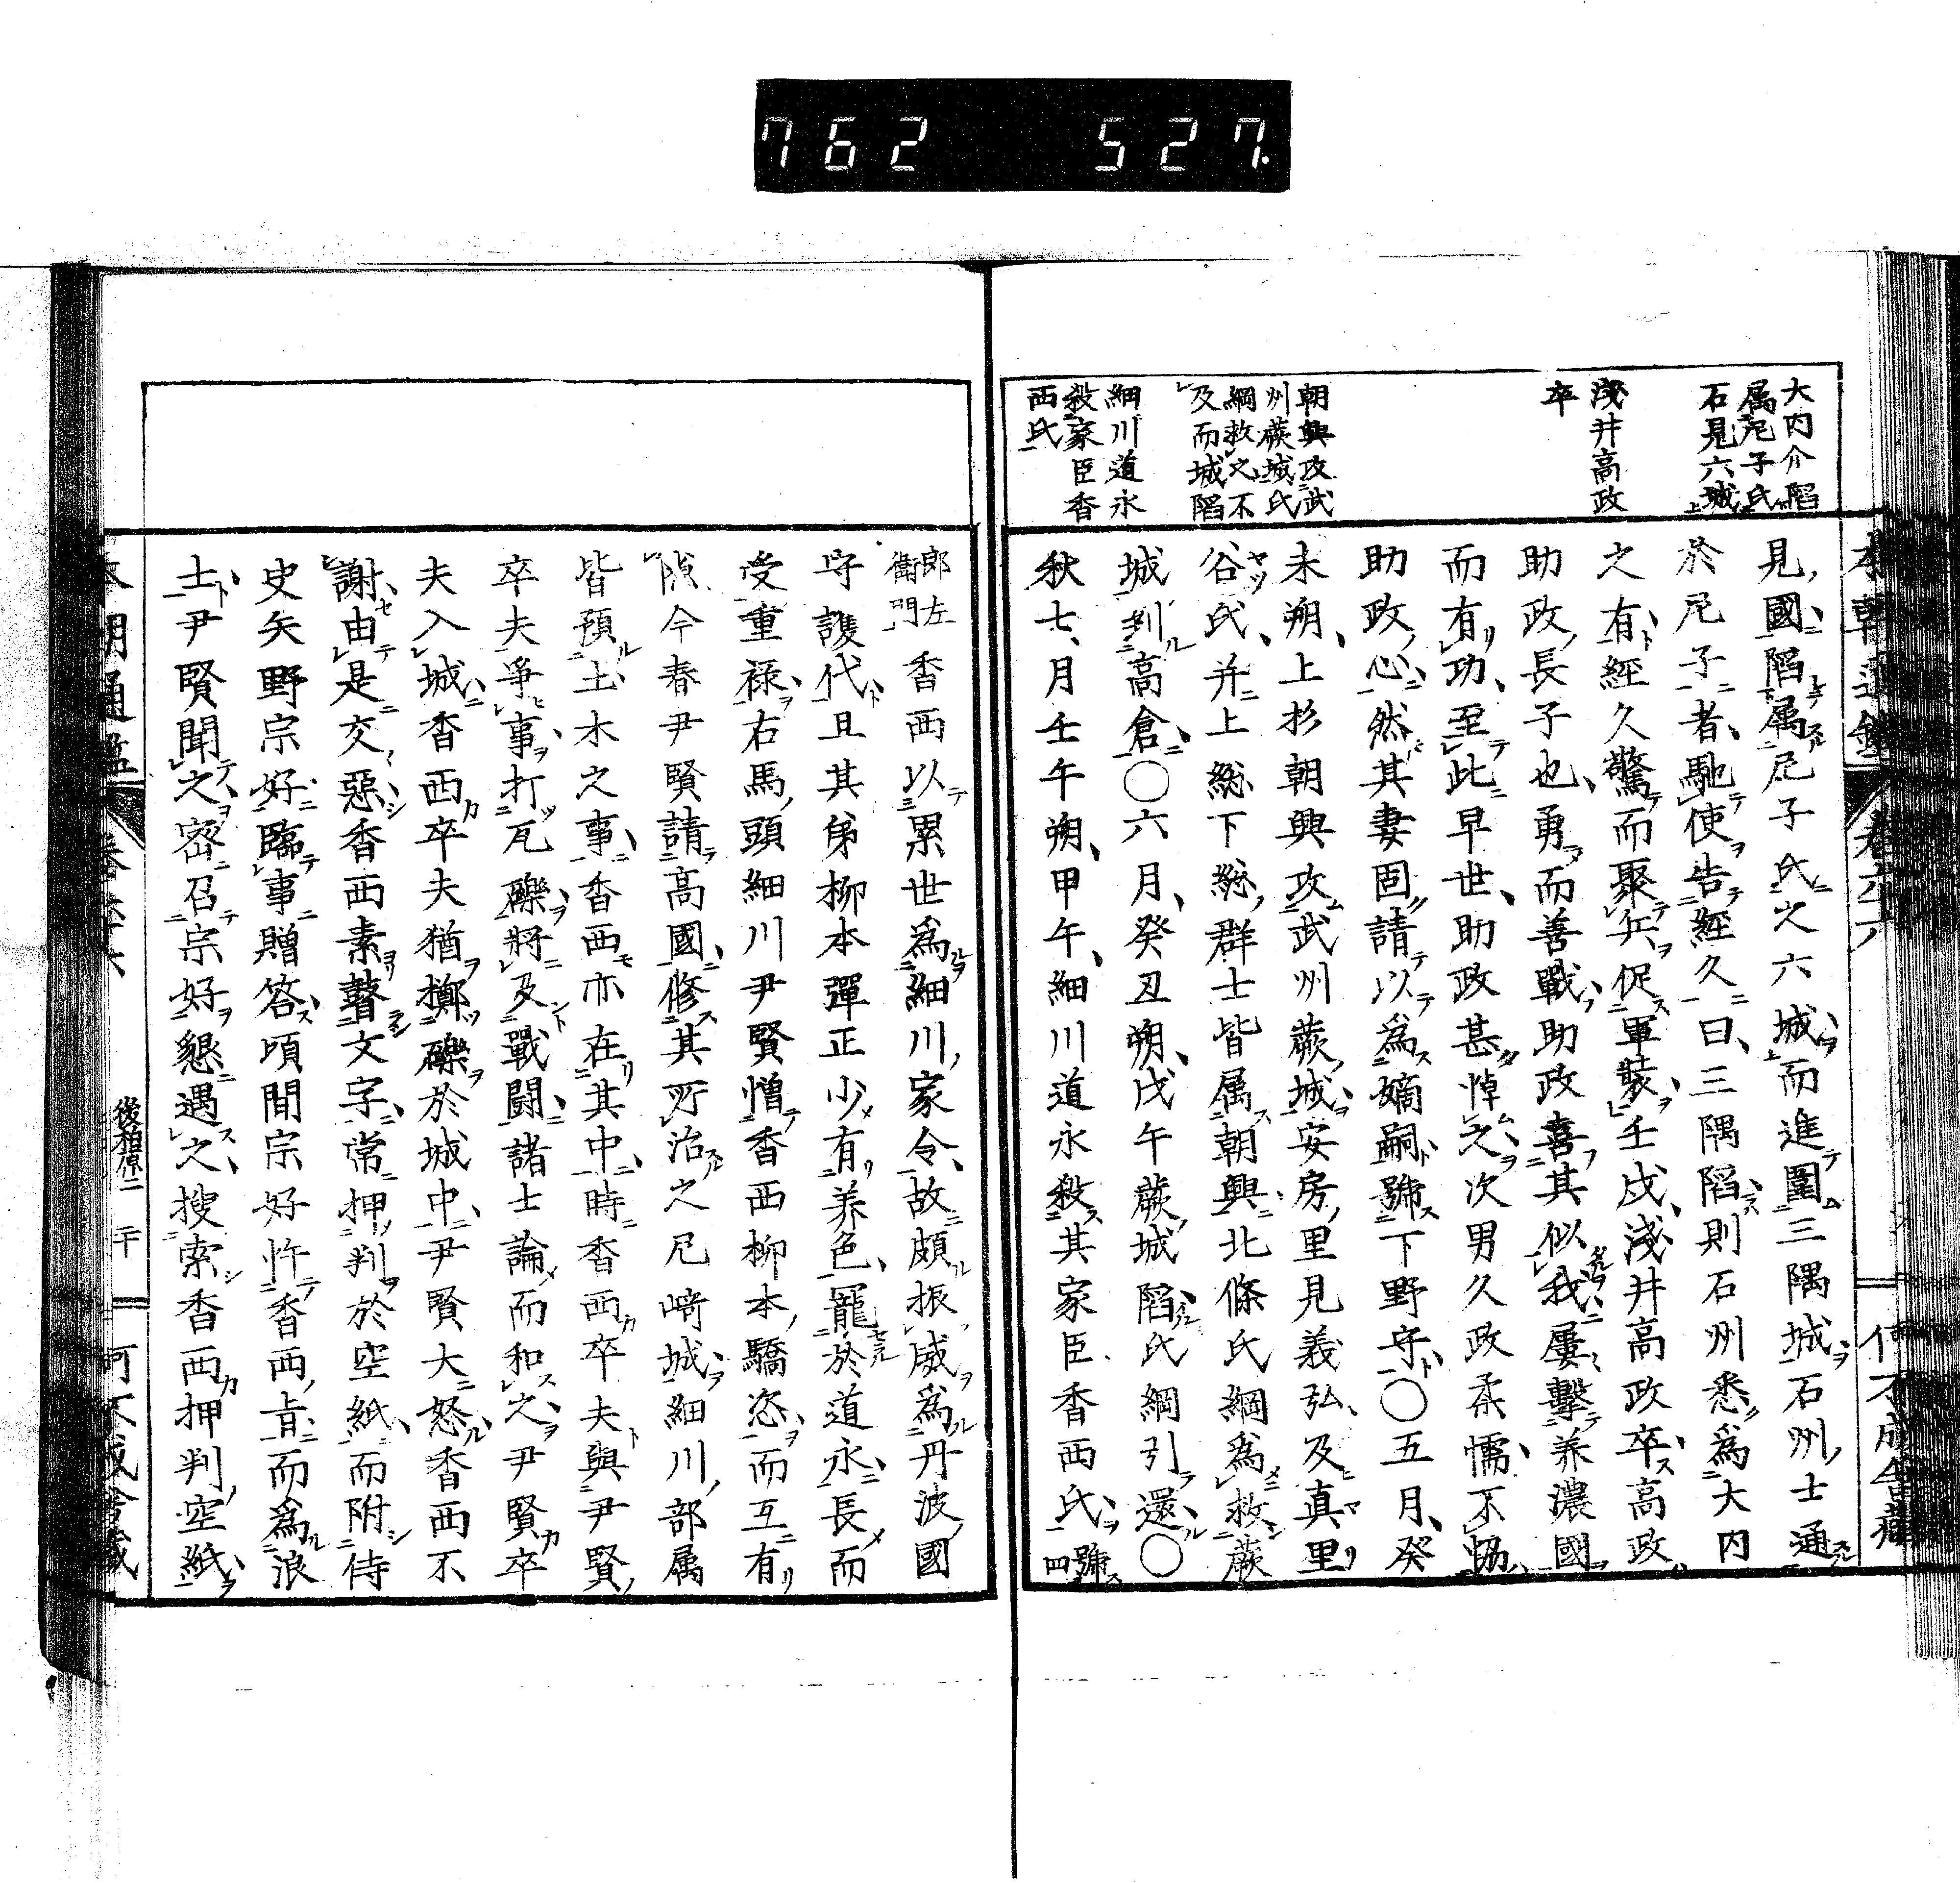 762 527.
本朝通鑑 卷六十六
何不成舎藏
大内介陷
属尼子氏
石見六城
淺井高政
卒
朝興攻武
州蕨城氏
綱救之不
及而城陷
細川道永
殺家臣香
西氏
見國陷属尼子氏之六城而進圍三隅城石州士通
於尼子者馳使告經久曰三隅陷則石州悉爲大内
之有經久驚而聚兵促軍裝壬戌淺井高政卒高政
助政長子也勇而善戰助政喜其似我屢擊养濃國
而有功至此早世助政甚悼之次男久政柔懦不恊
助政心然其妻固請以爲嫡嗣號下野守〇五月癸
未朔上杉朝興攻武州蕨城安房里見義弘及真里
谷氏并上総下総群士皆属朝興北條氏綱爲救蕨
城到高倉〇六月癸丑朔戊午蕨城陷氏綱引還〇
秋七月壬午朔甲午細川道永殺其家臣香西氏號四
郎左衛門香西以累世爲細川家令故頗振威爲丹波國
守護代且其弟柳本彈正少有养色寵於道永長而
受重禄右馬頭細川尹賢憎香西柳本驕恣而互有
隙今春尹賢請高國修其所治之尼﨑城細川部属
皆預土木之事香西亦在其中時香西卒夫與尹賢
卒夫爭事打瓦礫將及戰闘諸士論而和之尹賢卒
夫入城香西卒夫猶擲礫於城中尹賢大怒香西不
謝由是交惡香西素瞽文字常押判於空紙而附侍
史矢野宗好臨事贈答頃間宗好忤香西㫖而爲浪
士尹賢聞之密召宗好懇遇之搜索香西押判空紙
本朝通鑑 卷六十六 後柏原二 二十 何不成舎藏